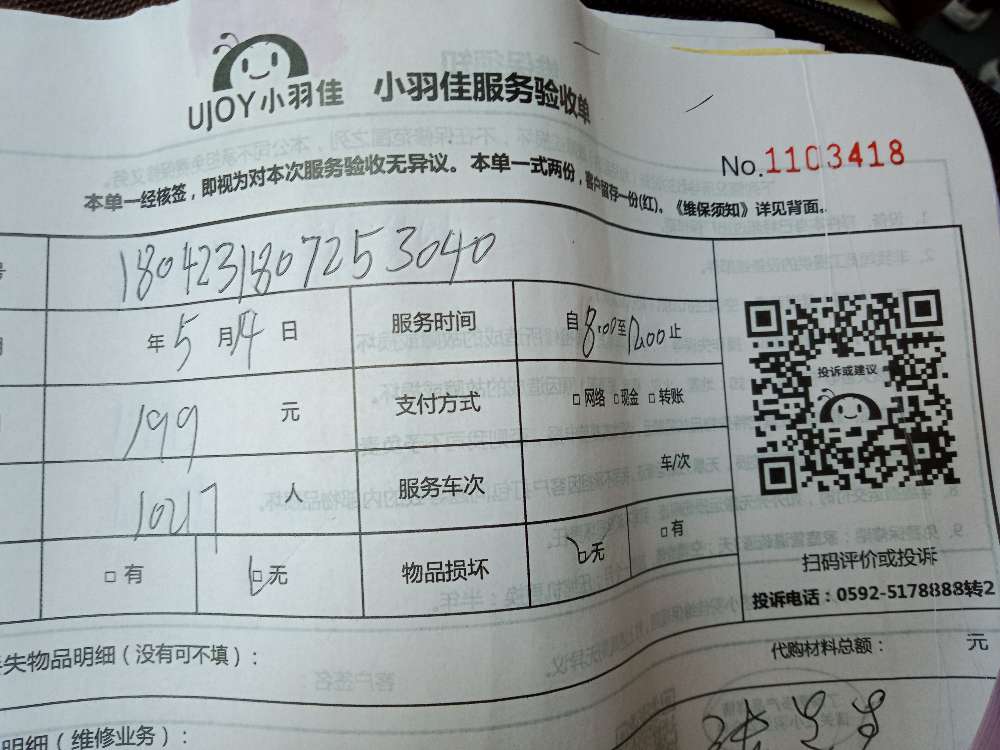 UJOY小羽佳 小羽佳服务验收单
No.1103418
本单一经核签，即视为对本次服务验收无异议。本单一式两份，客户留存一份(红)。《维保须知》详见背面。
号 1804231807253040
年5月14日 服务时间 自8:00至12:00止
199元 支付方式 □网络 □现金 □转账
1017人 服务车次 车/次
□有 □无 物品损坏 □无 □有
投诉或建议
扫码评价或投诉
投诉电话：0592-5178888转2
失物品明细（没有可不填）：
代购材料总额： 元
明细（维修业务）：